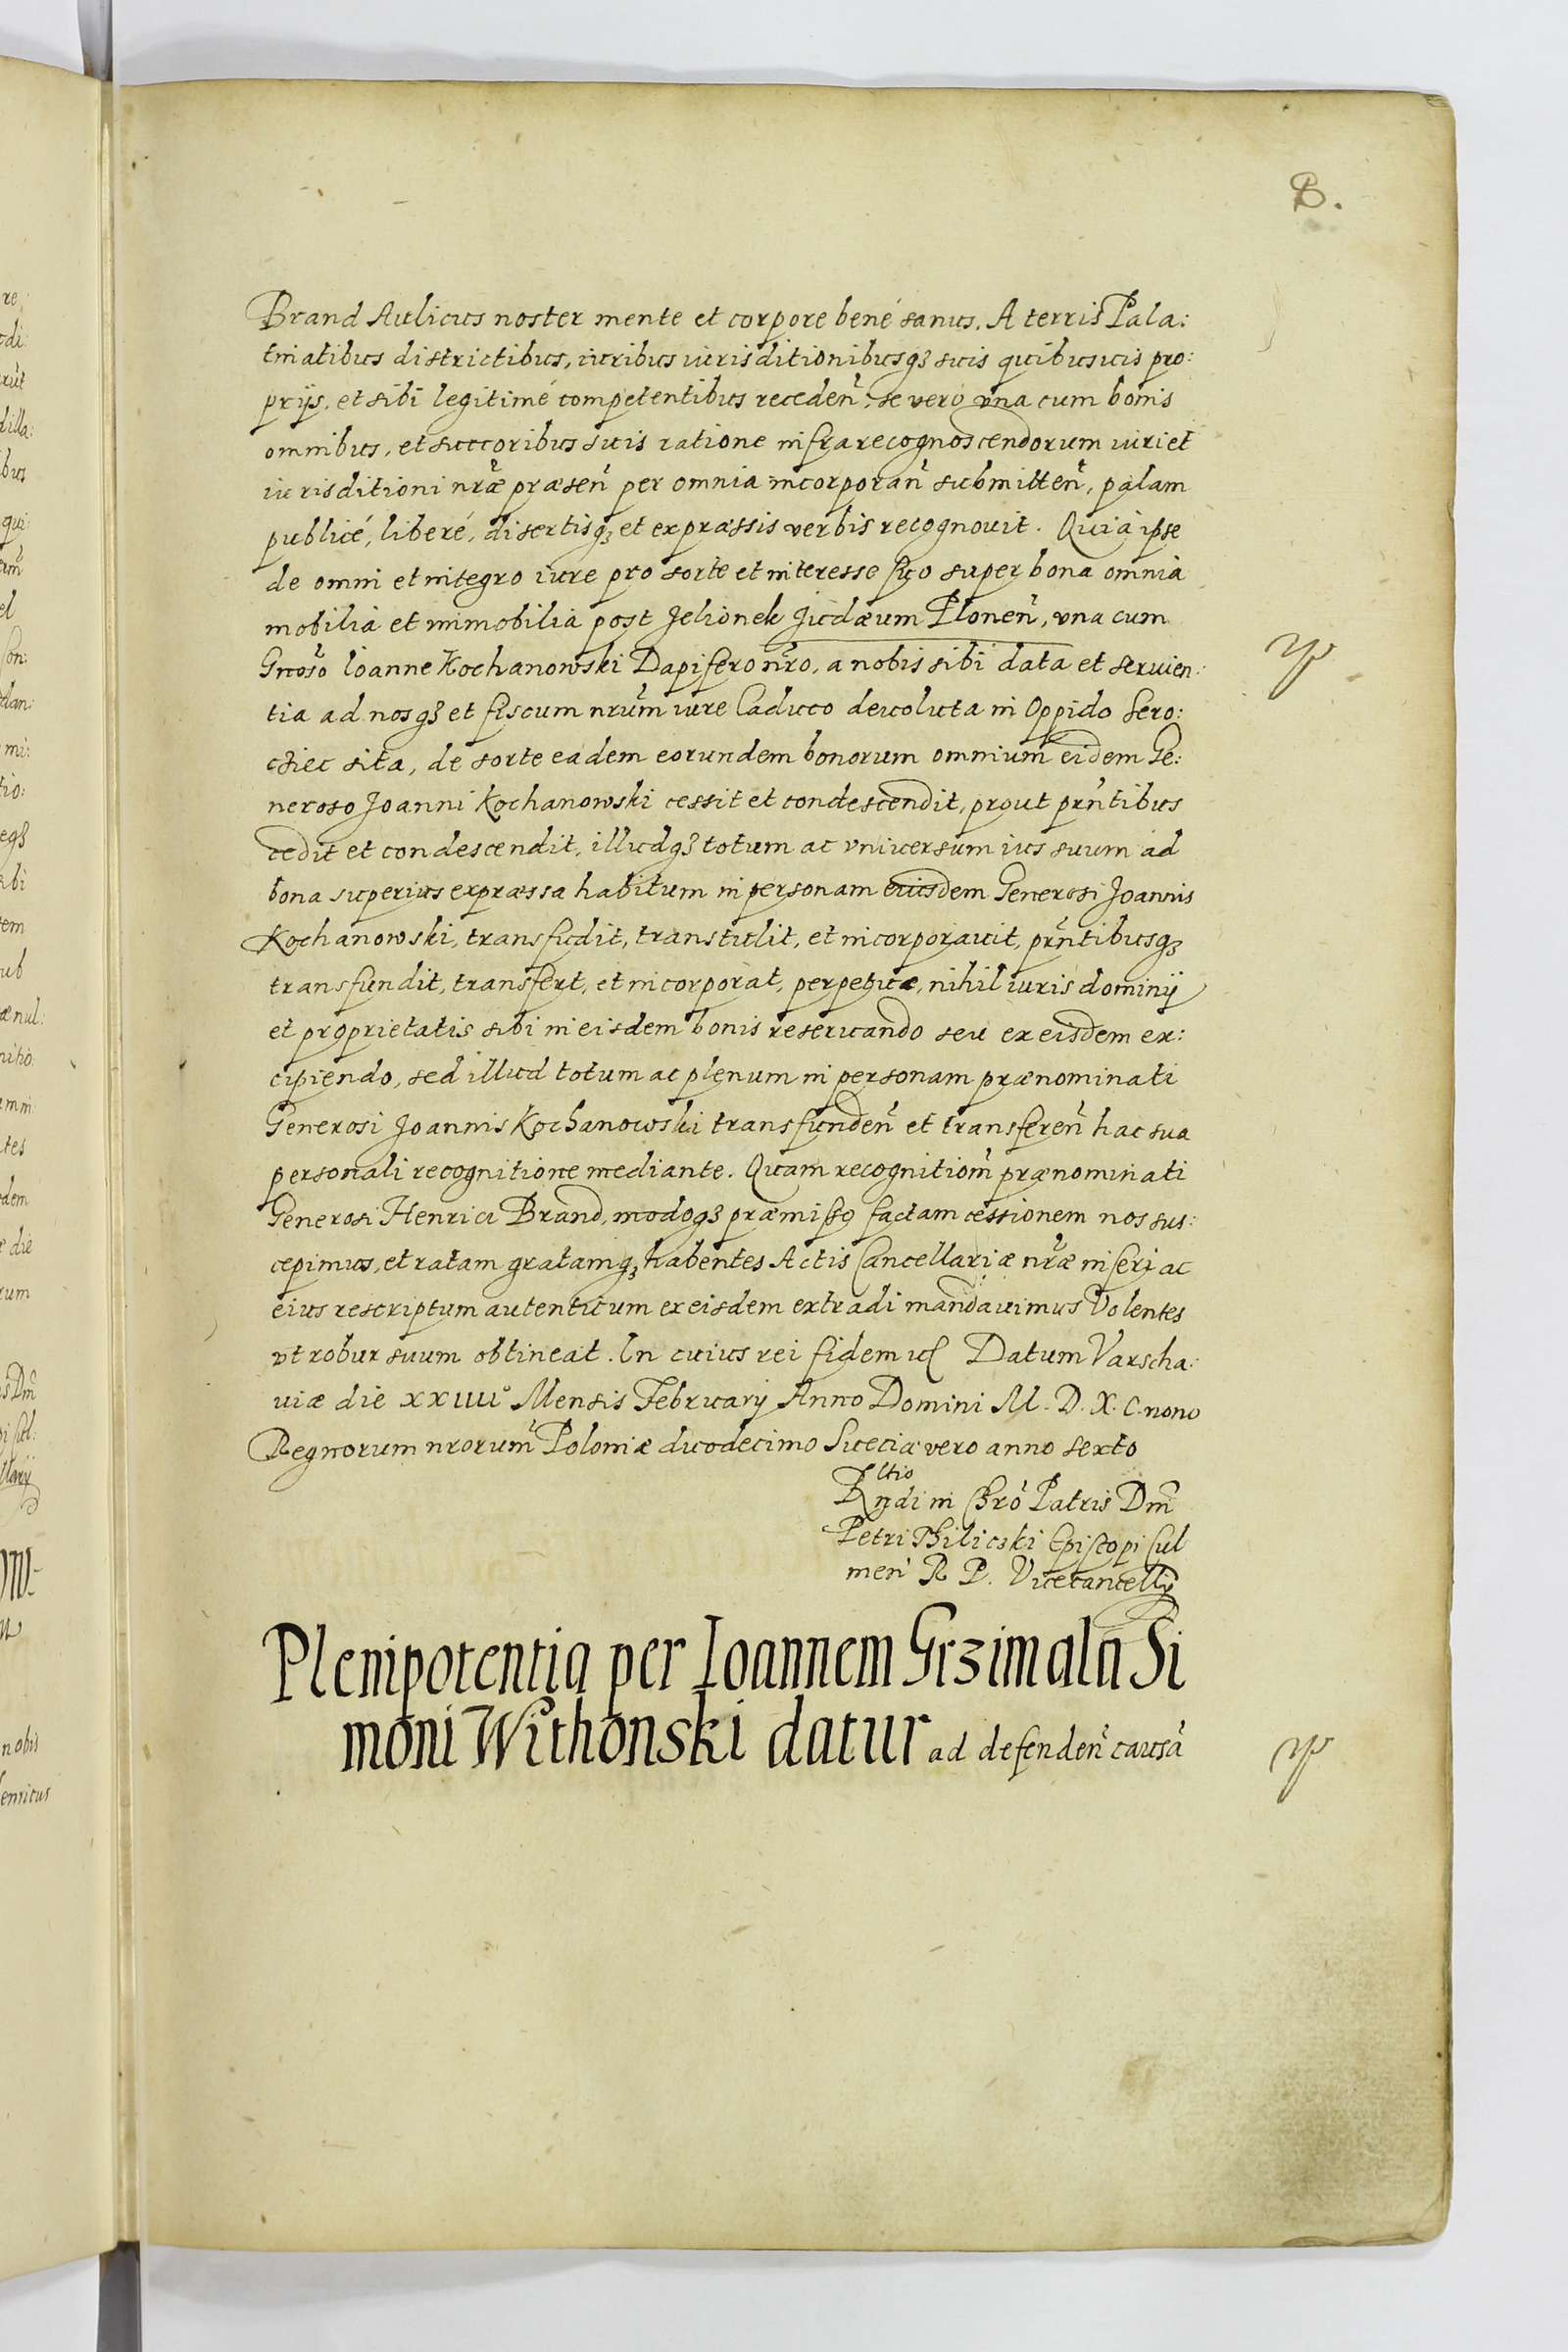 8.
Brand Aulicus noster mente et corpore bené sanus. A terris Pala:
tinatibus districtibus, iuribus iurisditionibusqȝ suis quibusuis pro:
prijs, et sibi legitimé competentibus receden̄, se vero vna cum bonis
omnibus, et succoribus suis ratione infrarecognoscendorum iuri et
iurisditioni nr̄æ præsen̄ per omnia incorporan̄ submitten̄, palam
publicé, liberé, disertisqȝ et expræssis verbis recognouit. Quia ipse
de omni et integro iure pro sorte et interesse suo super bona omnia
mobilia et immobilia post Jelionek Judæum Plonen̄, vna cum
Gnoso Ioanne Kochanowski Dapifero nr̄o, a nobis sibi data et seruien:
tia ad nosqȝ et fiscum nrūm iure Caduco deuoluta in Oppido Sero:
cziec sita, de sorte eadem eorundem bonorum omnium eidem Ge:
neroso Joanni Kochanowski cessit et condescendit, prout prn̄tibus
cedit et condescendit, illudqȝ totum ac vniuersum ius suum ad
bona superius expræssa habitum in personam eiusdem Generosi Joannis
Kochanowski, transfudit, transtulit, et incorporauit, prn̄tibusqȝ
transfundit, transfert, et incorporat, perpetuæ, nihil iuris dominij
et proprietatis sibi in eisdem bonis reseruando seu ex eisdem ex:
cipiendo, sed illud totum ac plenum in personam prænominati
Generosi Joannis Kochanowski transfunden̄ et transferen̄ hac sua
personali recognitione mediante. Quam recognitiom̄ prænominati
Generosi Henrici Brand, modoqȝ præmisso factam cessionem nos sus:
cepimus, et ratam gratamqȝ habentes Actis Cancellariæ nr̄æ inseri ac
eius rescriptum autenticum ex eisdem extradi mandauimus Volentes
vt robur suum obtineat. In cuius rei fidem Datum Varscha:
uiæ die XXIIII° Mensis Februarij Anno Domini M. D. X. C. nono
Regnorum nrorum̄ Poloniæ duodecimo Sueciæ vero anno sexto
Rltio
Rndi in Chrō Patris Dm̄
Petri Thilicski Episcopi Cul
men̄ R P. Vicecancelly
Plenipotentia per Ioannem Grzimala Si
moni Withonski datur ad defenden̄ causā